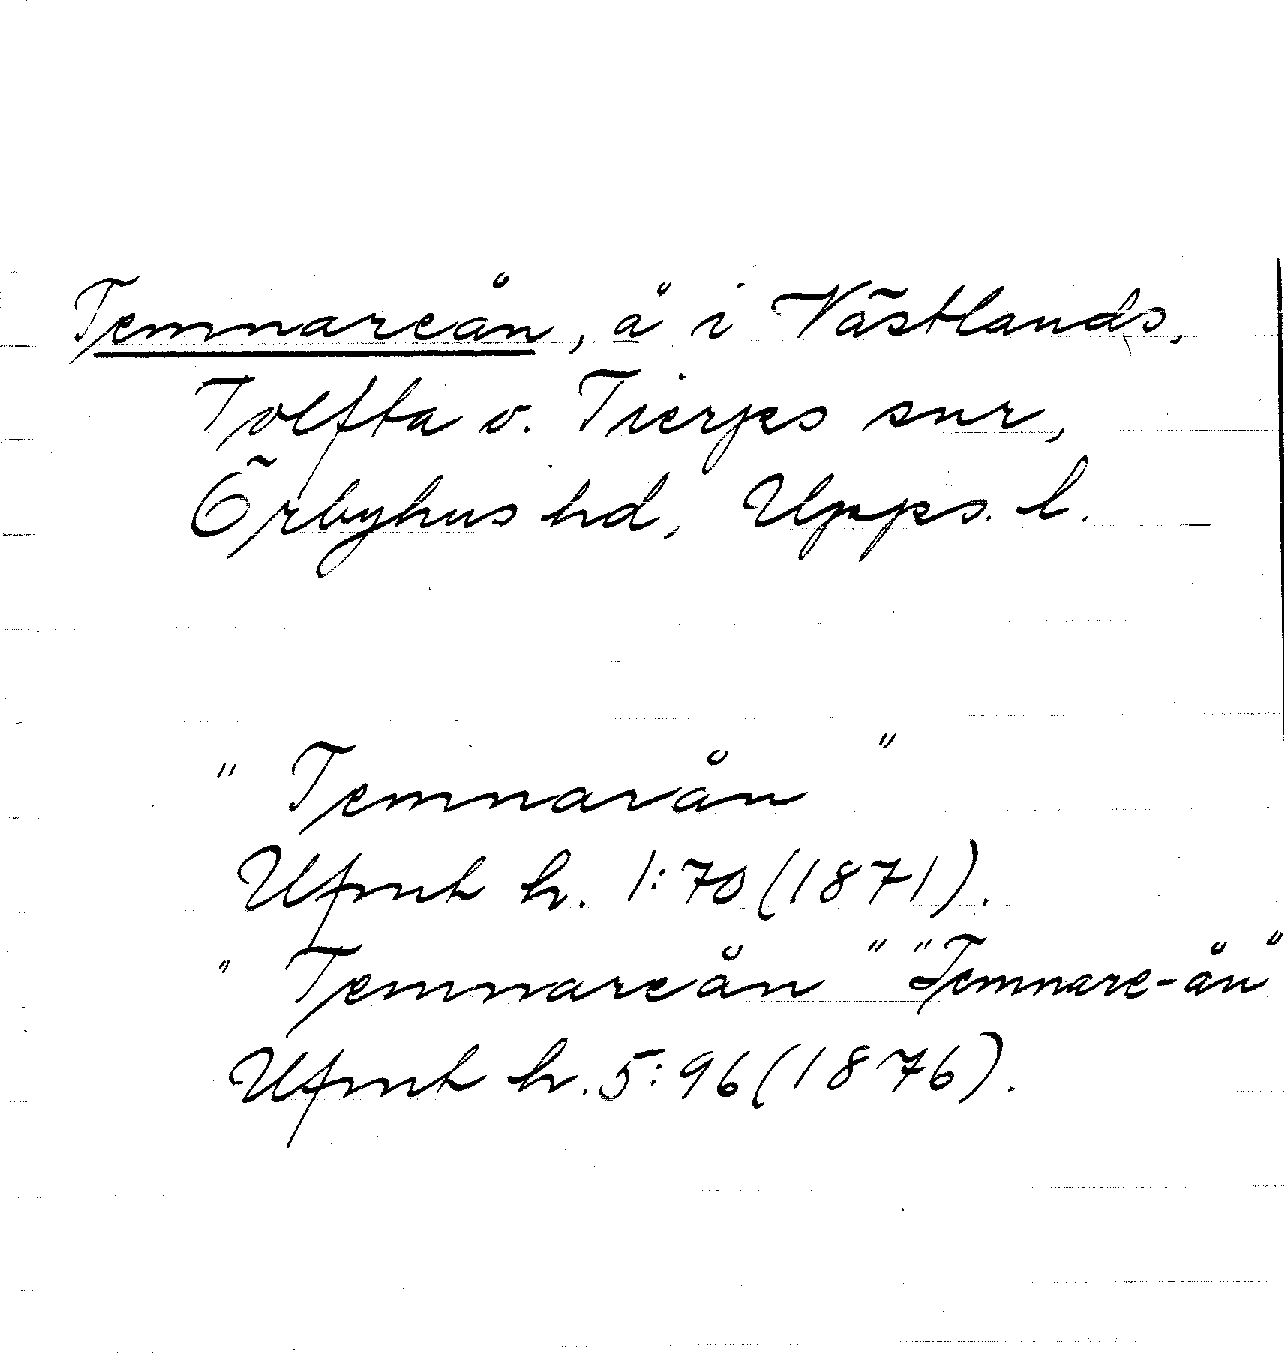 Temnareån, å i Västlands,
Tolfta o. Tierps snr,
Örbyhus hd, Upps. l.
" Temnarån "
Ufmt h. 1:70 (1871).
" Temnareån " "Temnare-ån"
Ufmt h. 5:96 (1876).